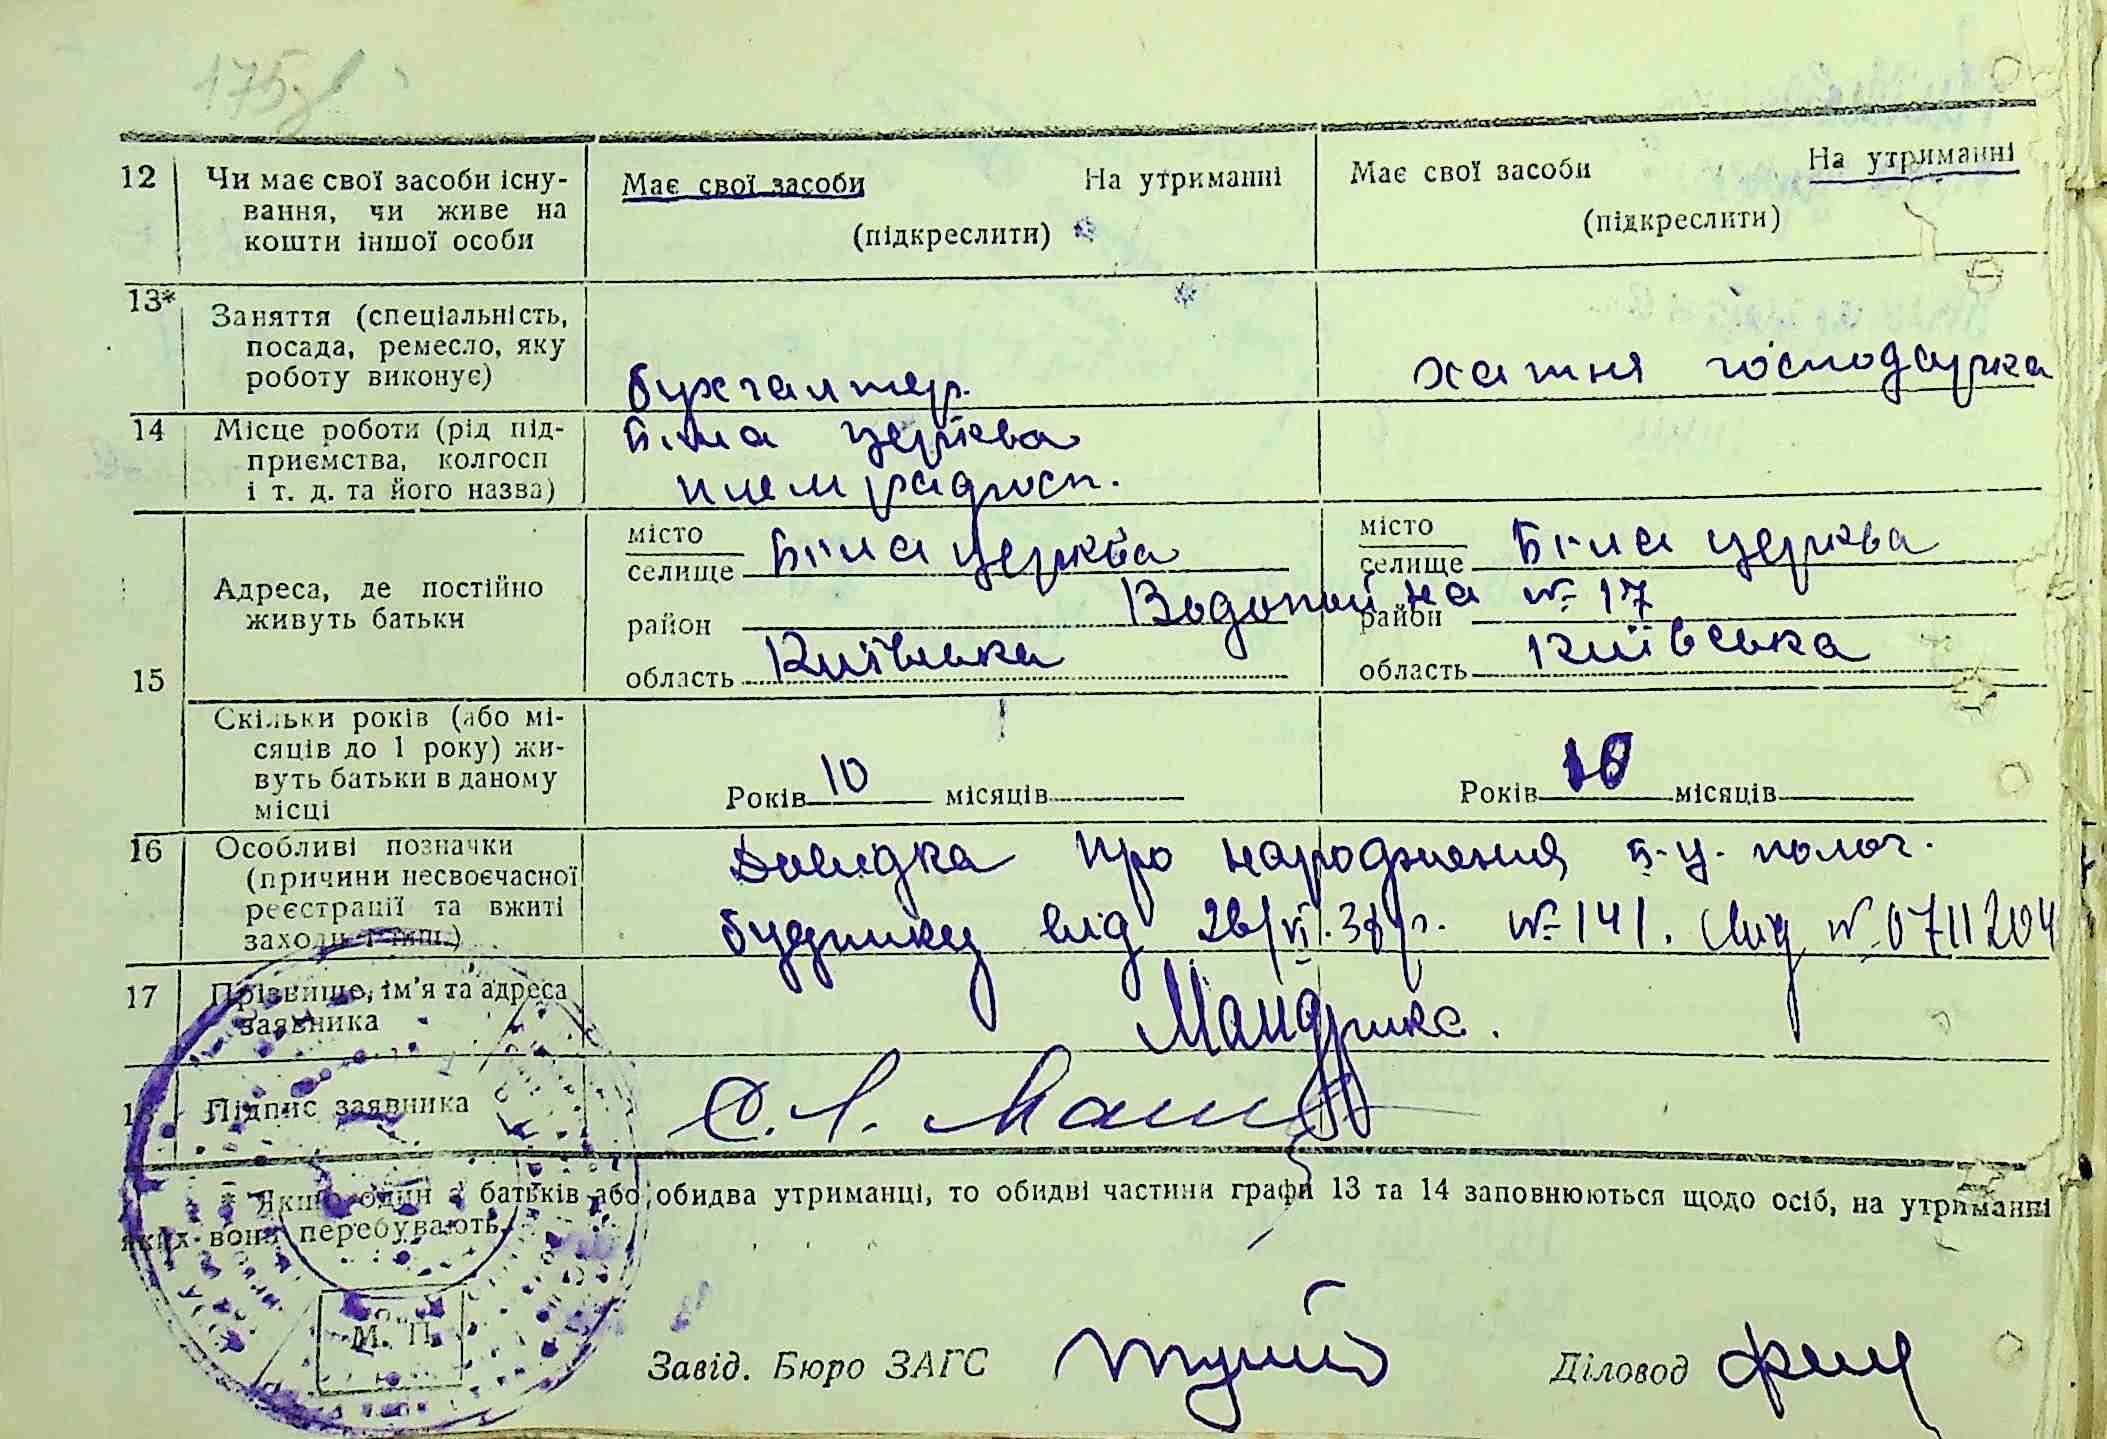 175
12 Чи має свої засоби існу-
вання, чи живе на
кошти іншої особи
Має свої засоби На утриманні
(підкреслити)
Має свої засоби На утриманні
(підкреслити)
13* Заняття (спеціальність,
посада, ремесло, яку
роботу виконує)
бухгалтер.
хатня господарка
14 Місце роботи (рід під-
приємства, колгосп
і т. д. та його назва)
Біла церква
племрадгосп.
15 Адреса, де постійно
живуть батьки
місто
селище Біла церква
район
область Київська
місто
селище Біла церква
Водопійна № 17
район
область Київська
Скільки років (або мі-
сяців до 1 року) жи-
вуть батьки в даному
місці
Років 10 місяців
Років 10 місяців
16 Особливі позначки
(причини несвоєчасної
реєстрації та вжиті
заходи і інш.)
Довидка про народження б.ц. полог.
будинку від 26/VI.38 р. № 141. № 0711204
17 Прізвище, ім'я та адреса
заявника
Мандрика.
18 Підпис заявника
С. Л.
* Якщо один з батьків або обидва утриманці, то обидві частини графи 13 та 14 заповнюються щодо осіб, на утриманні
яких вони перебувають.
М. П.
Завід. Бюро ЗАГС
Діловод